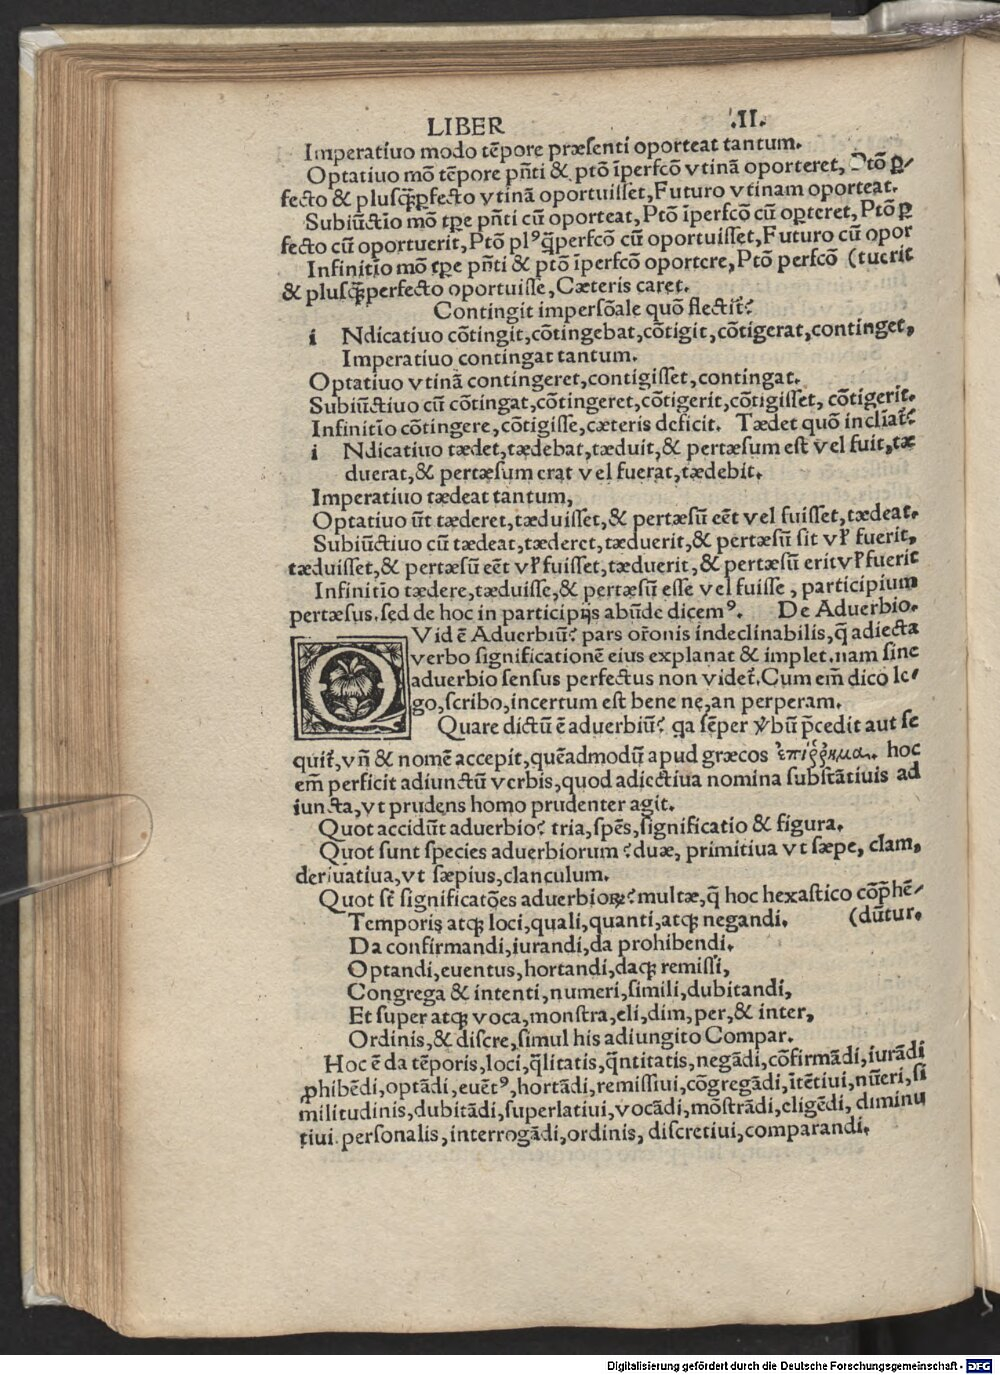 LIBER .II.
Imperatiuo modo tẽpore præsenti oporteat tantum.
Optatiuo mõ tẽpore pñti & ptõ ĩperfcõ vtinã oporteret, Ptõ ꝑ/
fecto & plusq̃ꝑfecto vtinã oportuisset, Futuro vtinam oporteat.
Subiũctiõ mõ tꝑe pñti cũ oporteat, Ptõ ĩperfcõ cũ oꝑteret, Ptõ ꝑ
fecto cũ oportuerit, Ptõ plꝰq̃perfcõ cũ oportuisset, Futuro cũ opor
Infinitĩo mõ tꝑe pñti & ptõ ĩperfcõ oportere, Ptõ perfcõ (tuerit
& plusq̃perfecto oportuisse, Cæteris caret.
Contingit impersõale quõ flectit̃?
i Ndicatiuo cõtingit, cõtingebat, cõtigit, cõtigerat, continget,
Imperatiuo contingat tantum.
Optatiuo vtinã contingeret, contigisset, contingat.
Subiũctiuo cũ cõtingat, cõtingeret, cõtigerit, cõtigisset, cõtigerit.
Infinitĩo cõtingere, cõtigisse, cæteris deficit. Tædet quõ inclĩat̃?
i Ndicatiuo tædet, tædebat, tæduit, & pertæsum est vel fuit, tæ
duerat, & pertæsum erat vel fuerat, tædebit.
Imperatiuo tædeat tantum,
Optatiuo ũt tæderet, tæduisset, & pertæsũ eẽt vel fuisset, tædeat.
Subiũctiuo cũ tædeat, tæderet, tæduerit, & pertæsũ sit vł fuerit,
tæduisset, & pertæsũ eẽt vł fuisset, tæduerit, & pertæsũ erit vł fuerit
Infinitĩo tædere, tæduisse, & pertæsũ esse vel fuisse, participium
pertæsus. sed de hoc in participijs abũde dicemꝰ. De Aduerbio.
QVid ẽ Aduerbiũ? pars or̃onis indeclinabilis, q̃ adiecta
verbo significationẽ eius explanat & implet. nam sine
aduerbio sensus perfectus non videt̃. Cum em̃ dico le/
go, scribo, incertum est bene ne, an perperam.
Quare dictũ ẽ aduerbiũ? qa sẽper ṽbũ p̃cedit aut se
quit̃, vñ & nomẽ accepit, quẽadmodũ apud græcos ἐπίῤῥημα. hoc
em̃ perficit adiunctũ verbis, quod adiectiua nomina substãtiuis ad
iuncta, vt prudens homo prudenter agit.
Quot accidũt aduerbio? tria, spẽs, significatio & figura.
Quot sunt species aduerbiorum? duæ, primitiua vt sæpe, clam,
deriuatiua, vt sæpius, clanculum.
Quot st̃ significatões aduerbioꝝ? multæ, q̃ hoc hexastico cõp̃hẽ/
Temporis atqꝫ loci, quali, quanti, atqꝫ negandi. (dũtur.
Da confirmandi, iurandi, da prohibendi.
Optandi, euentus, hortandi, daqꝫ remissi,
Congrega & intenti, numeri, simili, dubitandi,
Et super atqꝫ voca, monstra, eli, dim, per, & inter,
Ordinis, & discre, simul his adiungito Compar.
Hoc ẽ da tẽporis, loci, q̃litatis, q̃ntitatis, negãdi, cõfirmãdi, iurãdi
ꝓhibẽdi, optãdi, euẽtꝰ, hortãdi, remissiui, cõgregãdi, ĩtẽtiui, nũeri, si
militudinis, dubitãdi, superlatiui, vocãdi, mõstrãdi, eligẽdi, diminu
tiui. personalis, interrogãdi, ordinis, discretiui, comparandi.
Digitalisierung gefördert durch die Deutsche Forschungsgemeinschaft - DFG